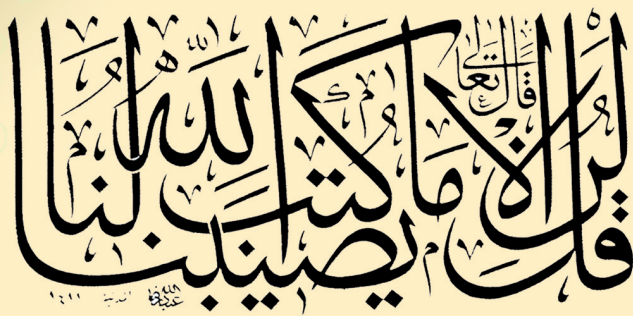 قال تعالى
قُل لَّن يُصِيبَنَا إِلَّا مَا كَتَبَ اللَّهُ لَنَا
١٤١١